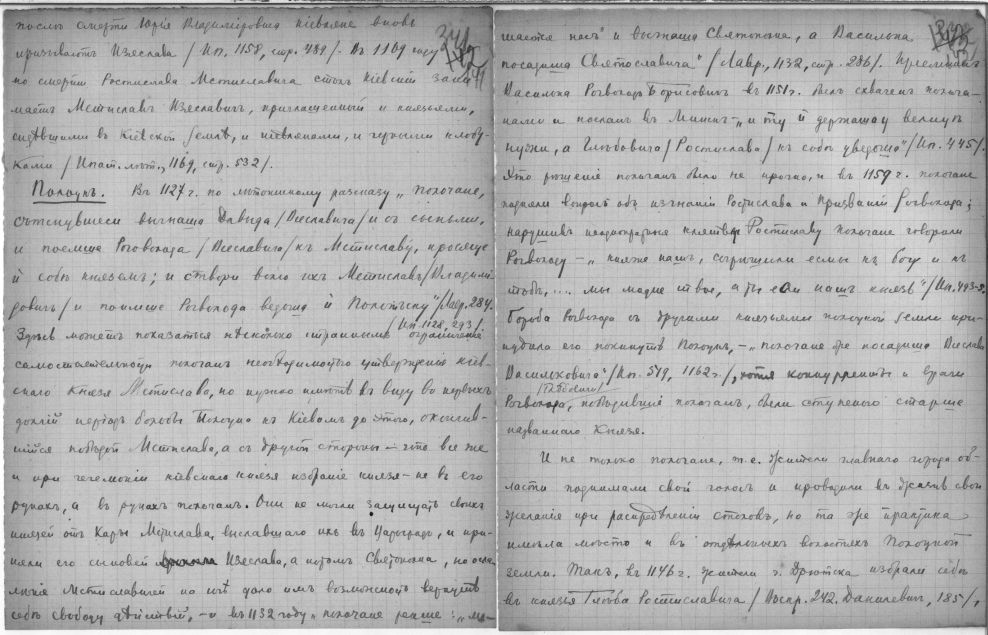 послѣ смерти Юрія Владиміровича кіевляне вновь
призываютъ Изяслава /Ип., 1158, стр. 489/. Въ 1169 году
по смерти Ростислава Мстиславича столъ кіевскій зани-
маетъ Мстиславъ Изяславичъ, приглашенный и князьями,
сидѣвшими въ Кіевской землѣ, и кіевлянами, и черными клобу-
ками /Ипат. лѣт., 1169, стр. 532/.
Полоцкъ. Въ 1127 г. по лѣтописному разсказу „полочане,
сътснувшеся выгнаша Давыда /Всеславича/ и съ сынъми,
и поемше Роговолода /Всеславича/ къ Мстиславу, просяще
й собѣ княземъ; и створи волю ихъ Мстиславъ /Владимі-
ровичъ/ и поимше Рогволода ведоша й Полотьску" /Лавр. 284.
Ип. 1128, 293/.
Здѣсь можетъ показаться нѣсколько страннымъ ограниченіе
самостоятельности полочанъ необходимостью утвержденія кіев-
скаго князя Мстислава, но нужно имѣть въ виду во первыхъ
долгій періодъ борьбы Полоцка съ Кіевомъ до этого, окончив-
шійся побѣдой Мстислава, а съ другой стороны – что все же
и при гегемоніи кіевскаго князя избраніе князя – не въ его
рукахъ, а въ рукахъ полочанъ. Они не могли защищать своихъ
князей отъ кары Мстислава, выславшаго ихъ въ Царьградъ, и при-
няли его сыновей Изяслава, а потомъ Святополка, но осла-
бленіе Мстиславичей по дало имъ возможность вернуть
себѣ свободу дѣйствій, – и въ 1132 году „полочане рекше: „ли-
шается насъ" и выгнаша Святополка, а Василька
посадиша Святославича" /Лавр., 1132, стр. 286/. Преемникъ
Василька Рогволодъ Борисовичъ въ 1151 г. былъ схваченъ полоча-
нами и посланъ въ Минскъ – „и ту й держаша у велицѣ
нужи, а Глѣбовича /Ростислава/ къ собѣ уведоша" /Ип. 445/.
Это рѣшеніе полочанъ было не прочно, и въ 1159 г. полочане
подняли вопросъ объ изгнаніи Ростислава и призваніи Рогволода;
нарушивъ неоднократное клятвы Ростиславу полочане говорили
Рогволоду – „княже нашъ, согрѣшили есмы къ Богу и къ
тобѣ, ... мы людие твое, а ты еси нашъ князь" /Ип. 493-5.
Борьба Рогволода съ другими князьями полоцкой земли при-
нудила его покинуть Полоцкъ, – „полочане же посадиша Всеслава
Васильковича" /Ип. 519, 1162 г./, хотя конкурренты и враги
/Глѣбовичи/
Рогволода, побѣдившіе полочанъ, были ступенью старше
названнаго князя.
И не только полочане, т.е. жители главнаго города об-
ласти поднимали свой голосъ и проводили въ жизнь свои
желанія при распредѣленіи столовъ, но та же практика
имѣла мѣсто и въ отдѣльныхъ волостяхъ Полоцкой
земли. Такъ, въ 1146 г. жители г. Дрютска избрали себѣ
въ князья Глѣба Ростиславича /Воскр. 242. Данилевич, 185/,